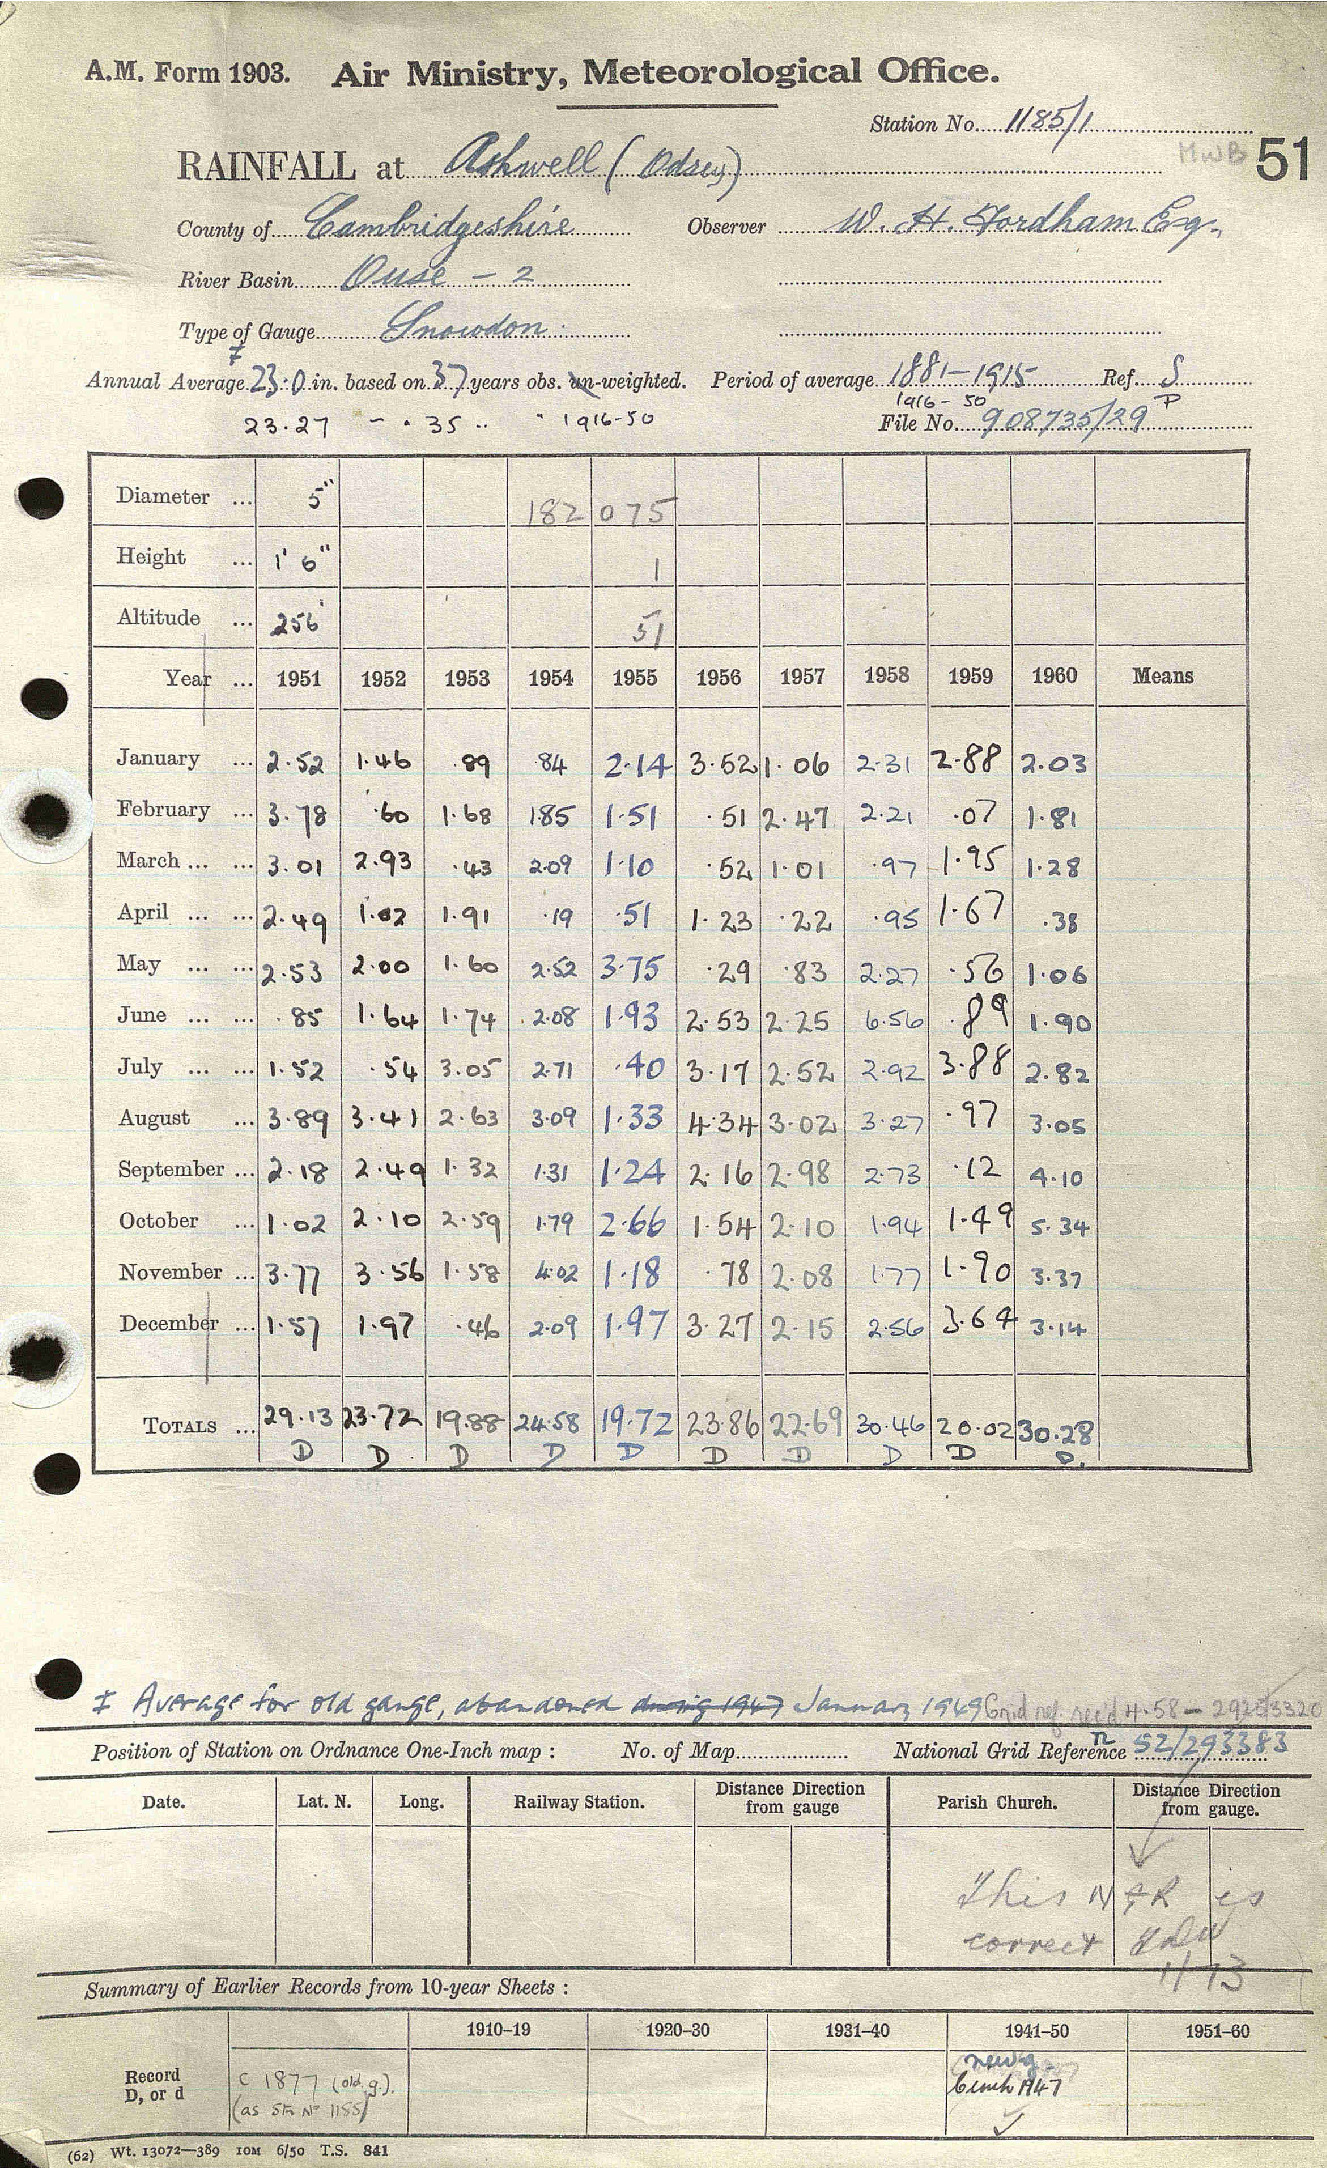 A.M. Form 1903. Air Ministry, Meteorological Office.
Station No. 1185/1
MWB 51
RAINFALL at Ashwell (Odsey)
County of Cambridgeshire Observer W. H. Fordham Esq.
River Basin Ouse - 2
Type of Gauge Snowdon
‡
Annual Average 23.0 in. based on 37 years obs. un-weighted. Period of average 1881-1915 Ref. S
1916-50 P
23.27 - . 35 .. " 1916-50 File No. 908735/29
Diameter ... 5" 182 075
Height ... 1' 6" 1
Altitude ... 256' 51
Year ... 1951 1952 1953 1954 1955 1956 1957 1958 1959 1960 Means
January ... 2.52 1.46 .89 .84 2.14 3.52 1.06 2.31 2.88 2.03
February ... 3.78 .60 1.68 1.85 1.51 .51 2.47 2.21 .07 1.81
March ... ... 3.01 2.93 .43 2.09 1.10 .52 1.01 .97 1.95 1.28
April ... ... 2.49 1.02 1.91 .19 .51 1.23 .22 .95 1.67 .38
May ... ... 2.53 2.00 1.60 2.52 3.75 .29 .83 2.27 .56 1.06
June ... ... .85 1.64 1.74 2.08 1.93 2.53 2.25 6.56 .89 1.90
July ... ... 1.52 .54 3.05 2.71 .40 3.17 2.52 2.92 3.88 2.82
August ... 3.89 3.41 2.63 3.09 1.33 4.34 3.02 3.27 .97 3.05
September ... 2.18 2.49 1.32 1.31 1.24 2.16 2.98 2.73 .12 4.10
October ... 1.02 2.10 2.59 1.79 2.66 1.54 2.10 1.94 1.49 5.34
November ... 3.77 3.56 1.58 4.02 1.18 .78 2.08 1.77 1.90 3.37
December ... 1.57 1.97 .46 2.09 1.97 3.27 2.15 2.56 3.64 3.14
TOTALS ... 29.13 23.72 19.88 24.58 19.72 23.86 22.69 30.46 20.02 30.28
D D D D D D D D D D.
‡ Average for old gauge, abandoned during 1947 January 1949 Grid ref. rec'd 4.58 -
Position of Station on Ordnance One-Inch map : No. of Map National Grid Reference 52/293383
Date. Lat. N. Long. Railway Station. Distance from gauge Direction Parish Church. Distance from gauge. Direction
This NGR is
correct
1/73
Summary of Earlier Records from 10-year Sheets :
1910-19 1920-30 1931-40 1941-50 1951-60
Record D, or d C 1877 (old g.). new g.
(as Stn No 1185) 1947
(62) Wt. 13072-389 10M 6/50 T.S. 841